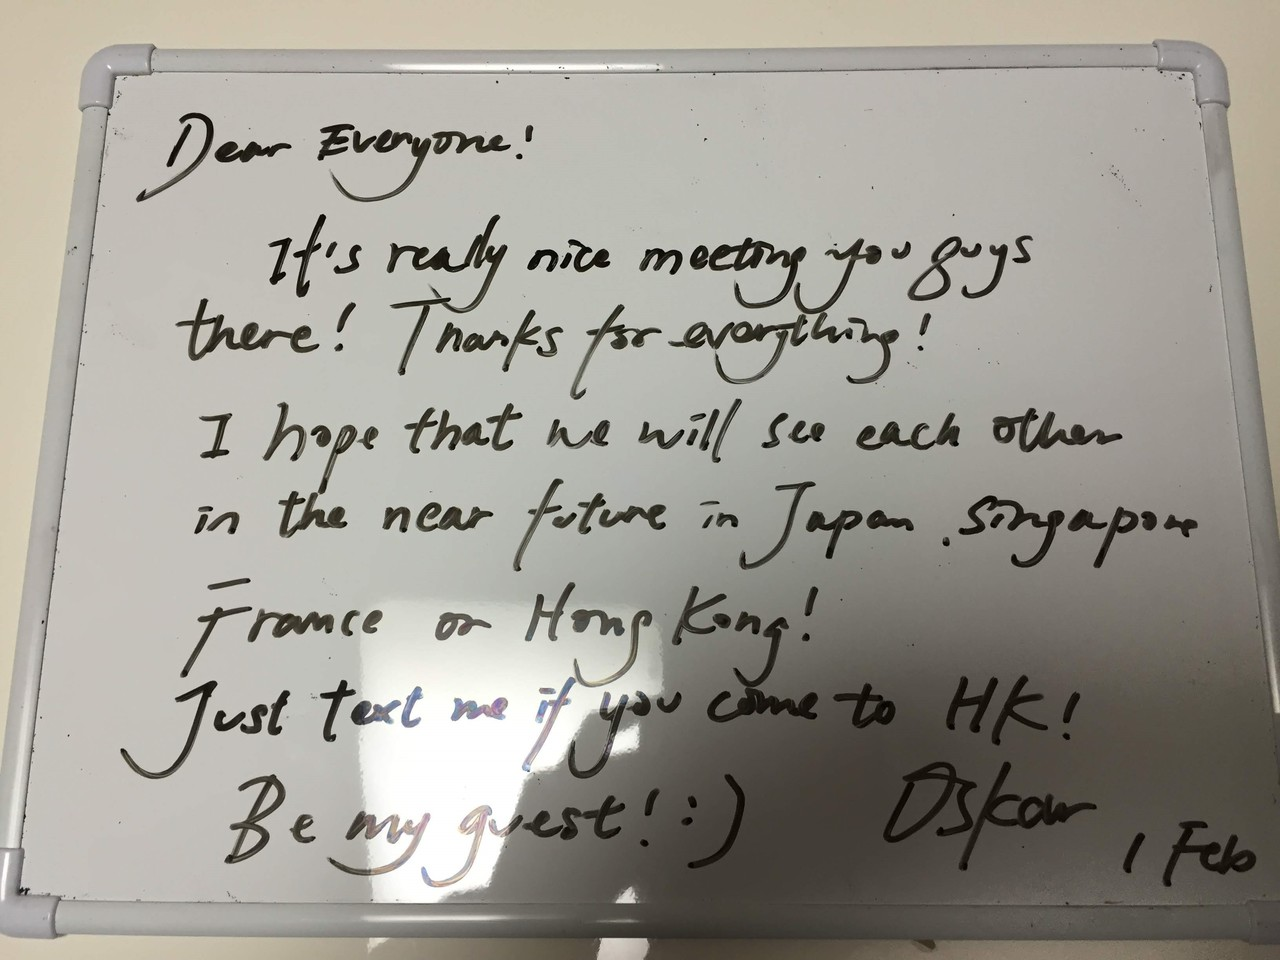 Dear Everyone!
It's really nice meeting you guys
there! Thanks for everything!
I hope that we will see each other
in the near future in Japan, Singapore
France or Hong Kong!
Just text me if you come to HK!
Be my guest! :) Oskar
1 Feb